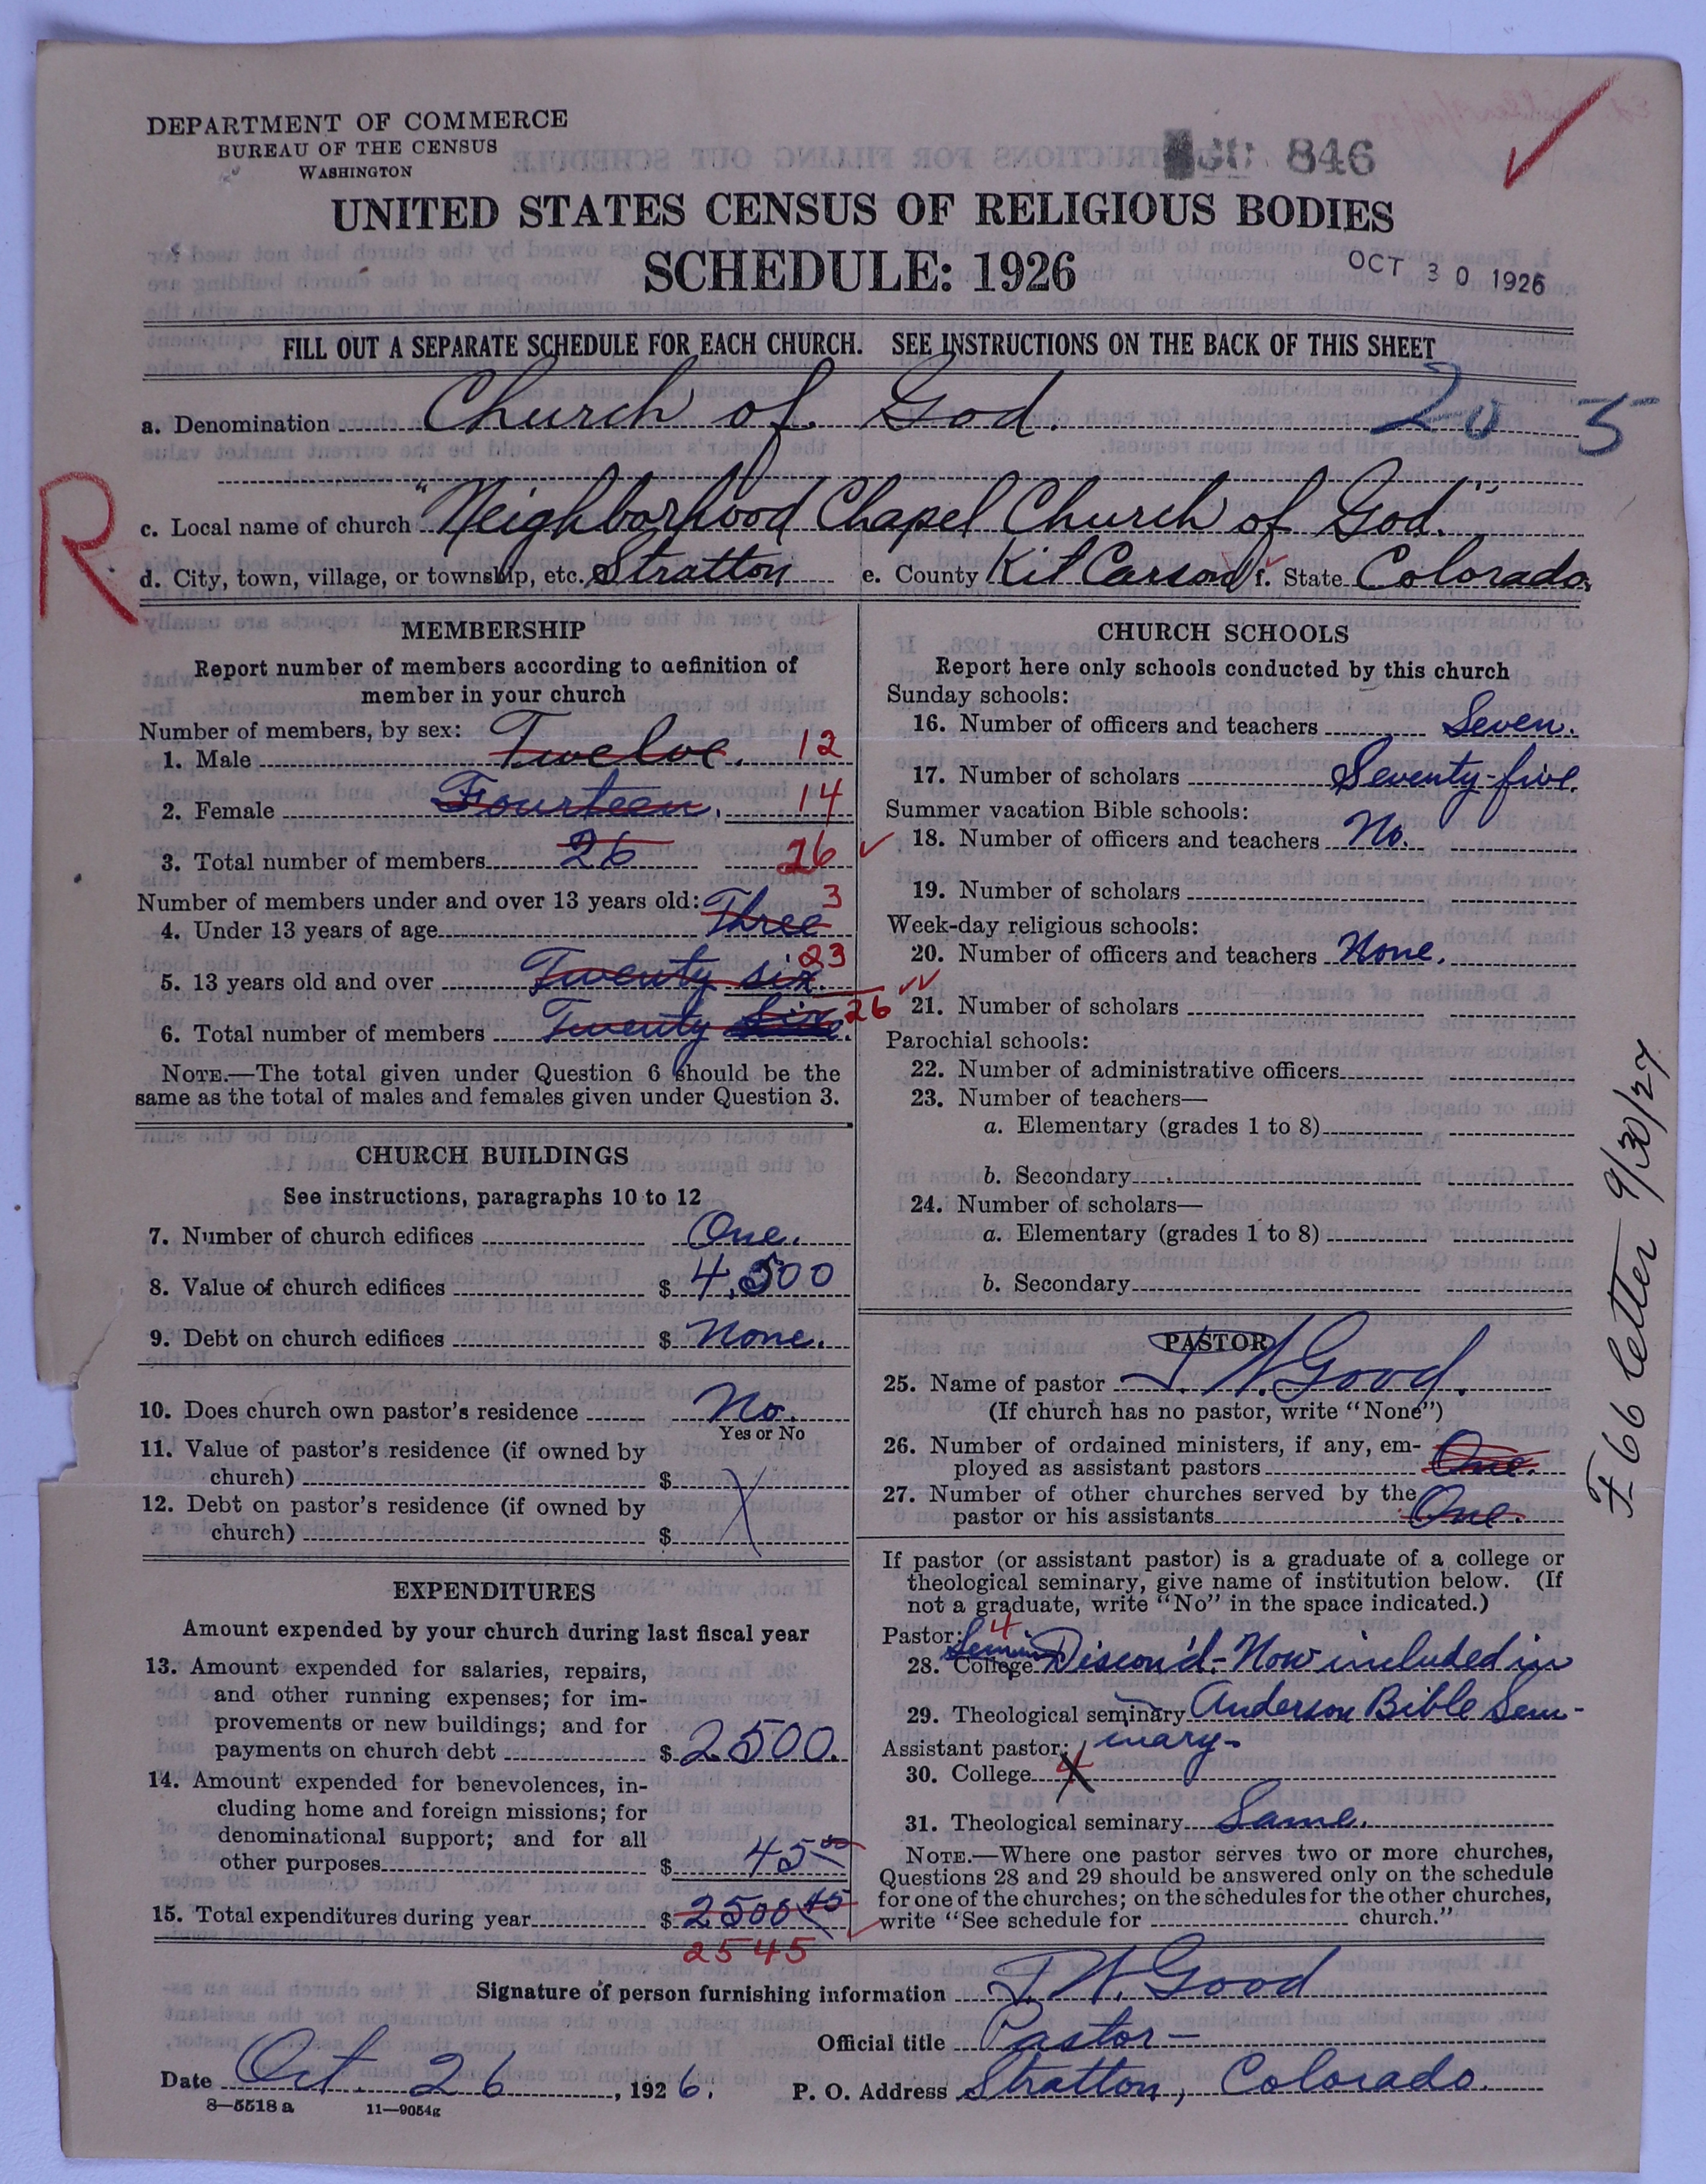 DEPARTMENT OF COMMERCE
BUREAU OF THE CENSUS
WASHINGTON
846
UNITED STATES CENSUS OF RELIGIOUS BODIES
SCHEDULE: 1926
OCT 30 1926
FILL OUT A SEPARATE SCHEDULE FOR EACH CHURCH. SEE INSTRUCTIONS ON THE BACK OF THIS SHEET
a. Denomination Church of God. 20 5
R
c. Local name of church "Neighborhood Chapel Church of God."
d. City, town, village, or township, etc. Stratton e. County Kit Carson f. State Colorado,
MEMBERSHIP
Report number of members according to definition of
member in your church
Number of members, by sex:
1. Male Twelve. 12
2. Female Fourteen. 14
3. Total number of members 26 26
Number of members under and over 13 years old:
4. Under 13 years of age Three 3
5. 13 years old and over Twenty six. 23
6. Total number of members Twenty Six. 26
NOTE.—The total given under Question 6 should be the
same as the total of males and females given under Question 3.
CHURCH BUILDINGS
See instructions, paragraphs 10 to 12
7. Number of church edifices One.
8. Value of church edifices $ 4,500
9. Debt on church edifices $ None.
10. Does church own pastor's residence No.
Yes or No
11. Value of pastor's residence (if owned by
church) $
12. Debt on pastor's residence (if owned by
church) $
EXPENDITURES
Amount expended by your church during last fiscal year
13. Amount expended for salaries, repairs,
and other running expenses; for im-
provements or new buildings; and for
payments on church debt $ 2500.
14. Amount expended for benevolences, in-
cluding home and foreign missions; for
denominational support; and for all
other purposes $ 45 00
15. Total expenditures during year $ 2500 45
2545
CHURCH SCHOOLS
Report here only schools conducted by this church
Sunday schools:
16. Number of officers and teachers Seven.
17. Number of scholars Seventy-five.
Summer vacation Bible schools:
18. Number of officers and teachers No.
19. Number of scholars
Week-day religious schools:
20. Number of officers and teachers None.
21. Number of scholars
Parochial schools:
22. Number of administrative officers
23. Number of teachers—
a. Elementary (grades 1 to 8)
b. Secondary
24. Number of scholars—
a. Elementary (grades 1 to 8)
b. Secondary
PASTOR
25. Name of pastor J. W. Good.
(If church has no pastor, write "None")
26. Number of ordained ministers, if any, em-
ployed as assistant pastors One.
27. Number of other churches served by the
pastor or his assistants One.
If pastor (or assistant pastor) is a graduate of a college or
theological seminary, give name of institution below. (If
not a graduate, write "No" in the space indicated.)
Pastor: 4
28. College Discon'd.- Now included in
29. Theological seminary Anderson Bible Sem-
Assistant pastor: inary-
30. College X
31. Theological seminary Same.
NOTE.—Where one pastor serves two or more churches,
Questions 28 and 29 should be answered only on the schedule
for one of the churches; on the schedules for the other churches,
write "See schedule for church."
Signature of person furnishing information J. W. Good
Official title Pastor-
Date Oct. 26, 1926. P. O. Address Stratton, Colorado.
8—5518 a 11—9054g
F 66 letter 9/30/27